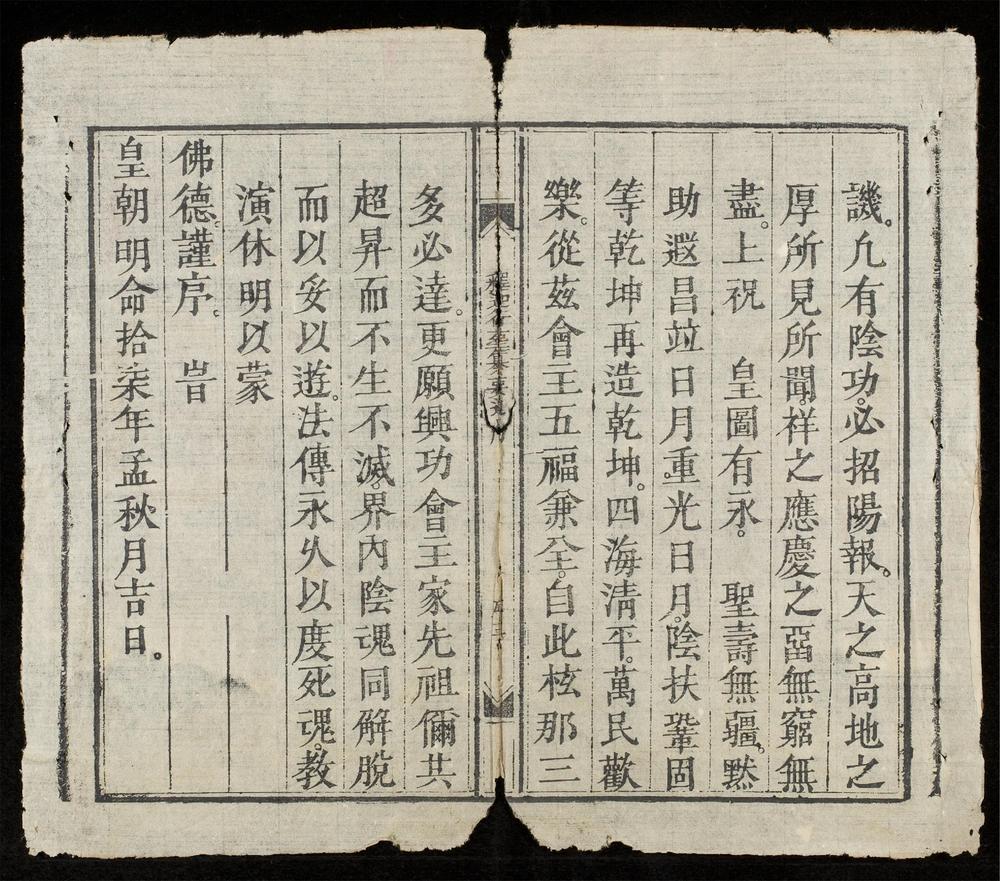 譏。凢有陰功。必招陽報。天之高地之
厚所見所聞。祥之應慶之啚無窮無
盡。上祝　皇圖有永。　聖壽無疆。黙
助遐昌竝日月重光日月。陰扶鞏固
等乾坤再造乾坤。四海清平。萬民歡
樂。從茲會主五福兼全。自此檀那三
多必達。更願興功會主家先祖俻共
超昇而不生不滅。界內陰魂同解脫
而以妥以遊。法傳永久以度死魂。教
演休明以蒙
佛德。謹序。　旹
皇朝明命拾柒年孟秋月吉日。